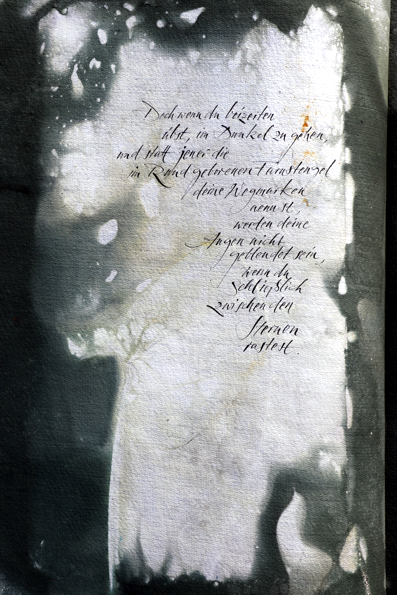 Doch wenn du beizeiten
übst, im Dunkel zu gehen,
und statt jener die
im Rund geborenen
deine Wegmarken
nennst,
werden deine
Augen nicht
geblendet sein,
wenn du
schließlich
zwischen den
Sternen
rastest.